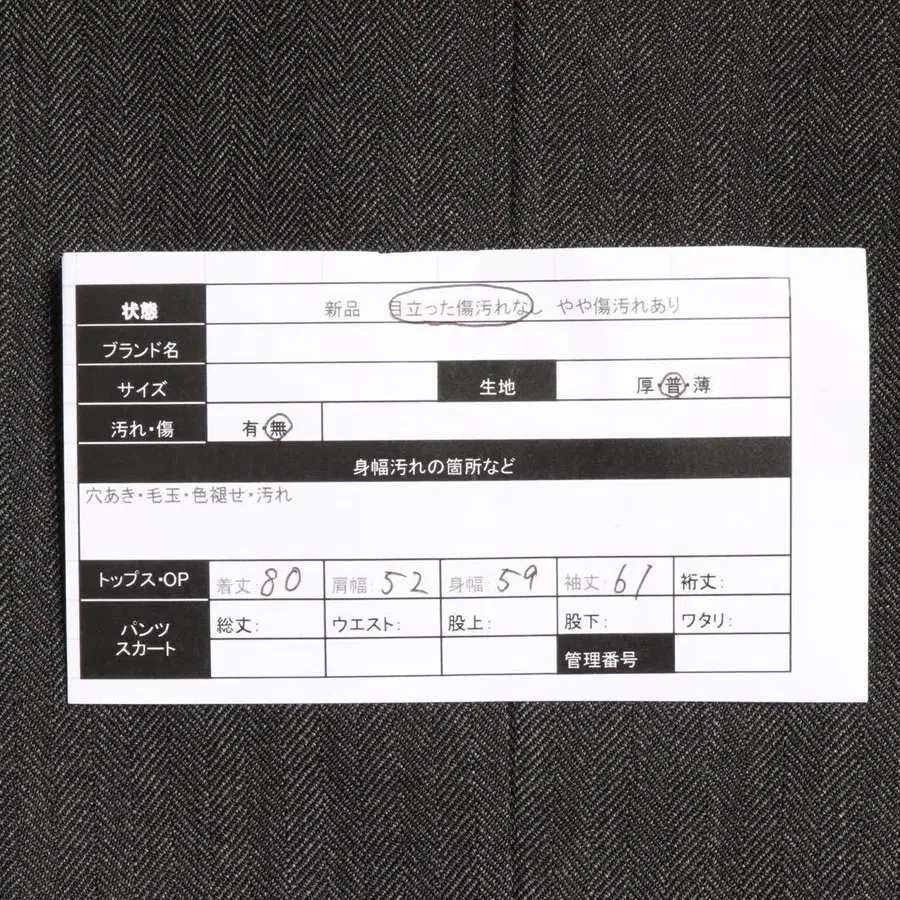 状態 新品 目立った傷汚れなし やや傷汚れあり
ブランド名
サイズ 生地 厚・普・薄
汚れ・傷 有・無
身幅汚れの箇所など
穴あき・毛玉・色褪せ・汚れ
トップス・OP 着丈:80 肩幅:52 身幅:59 袖丈:61 裄丈:
パンツ 総丈: ウエスト: 股上: 股下: ワタリ:
スカート 管理番号